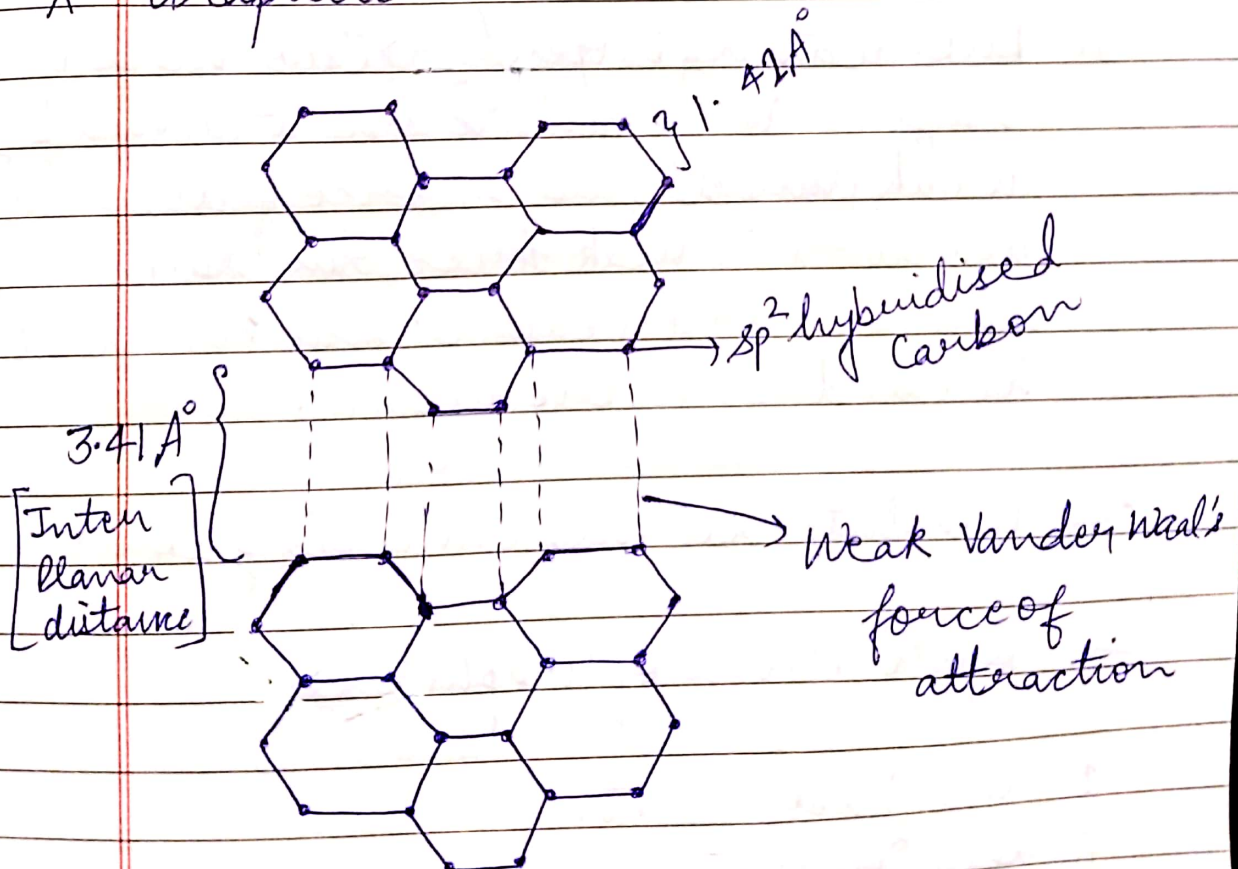 1.42Å
sp² hybridised
Carbon
3.41Å
[Inter
Planar
distance]
Weak Vander Waal's
force of
attraction